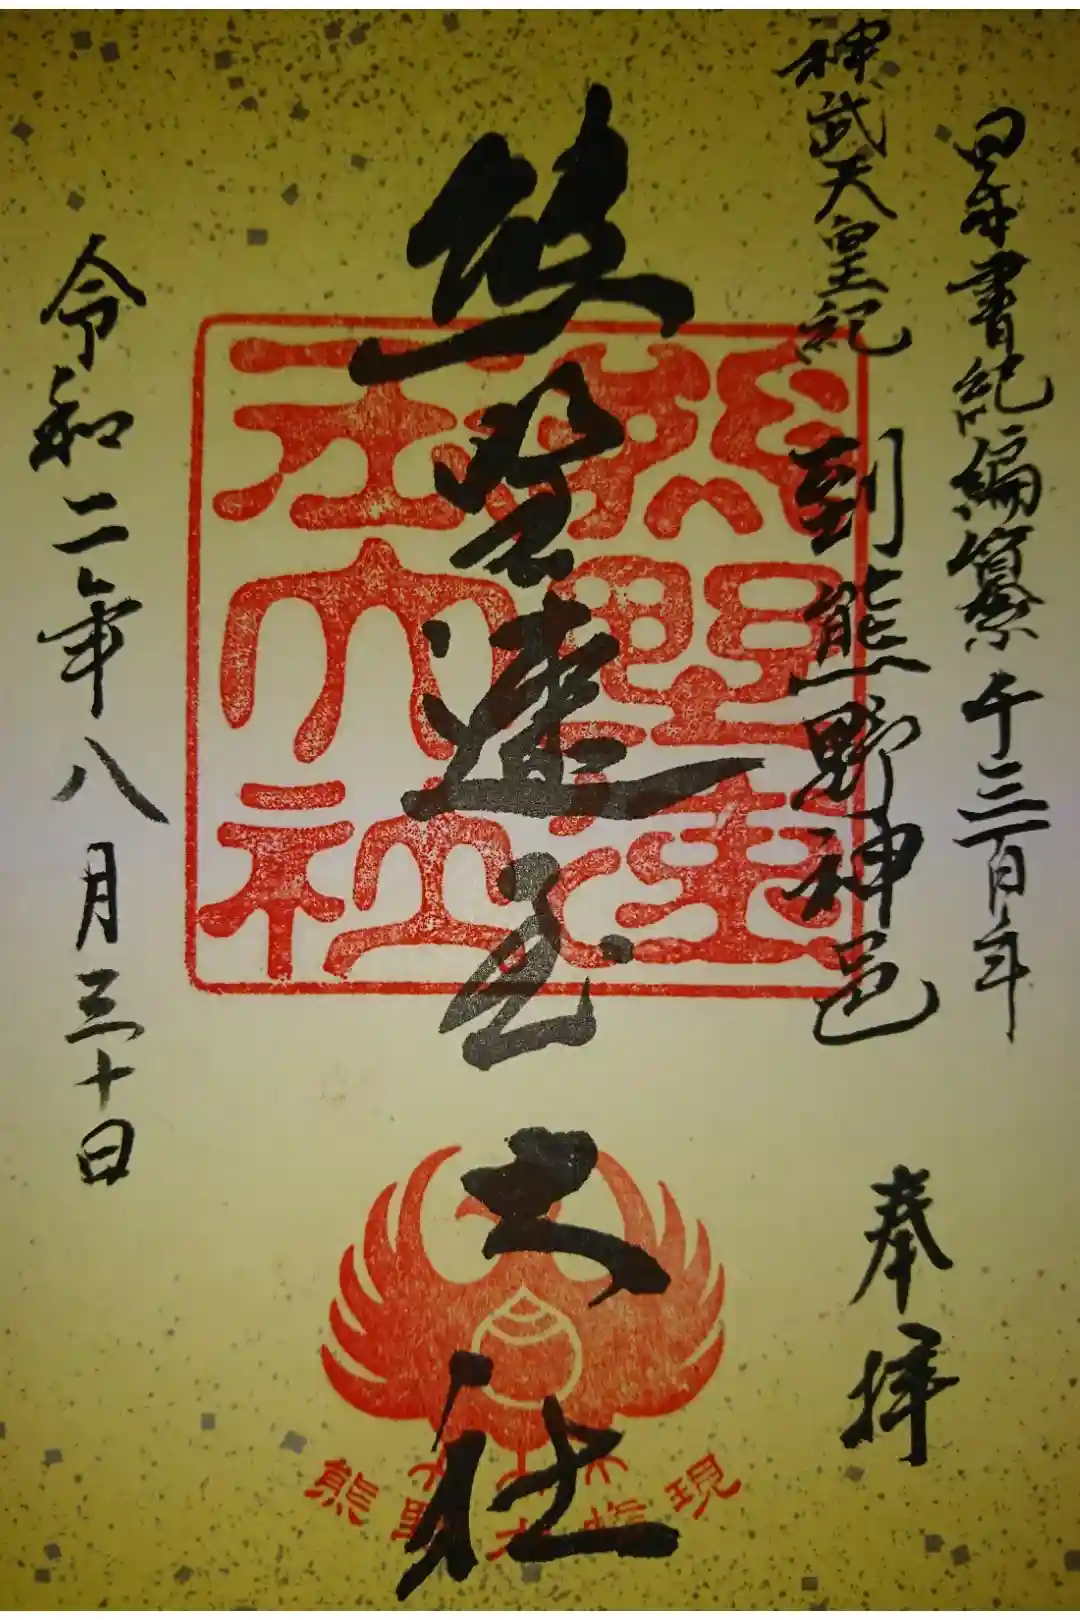 日本書紀編纂千三百年
神武天皇紀 到熊野神邑
奉拝
熊野速玉大社
熊野速玉大社
熊野大権現
令和二年八月三十日